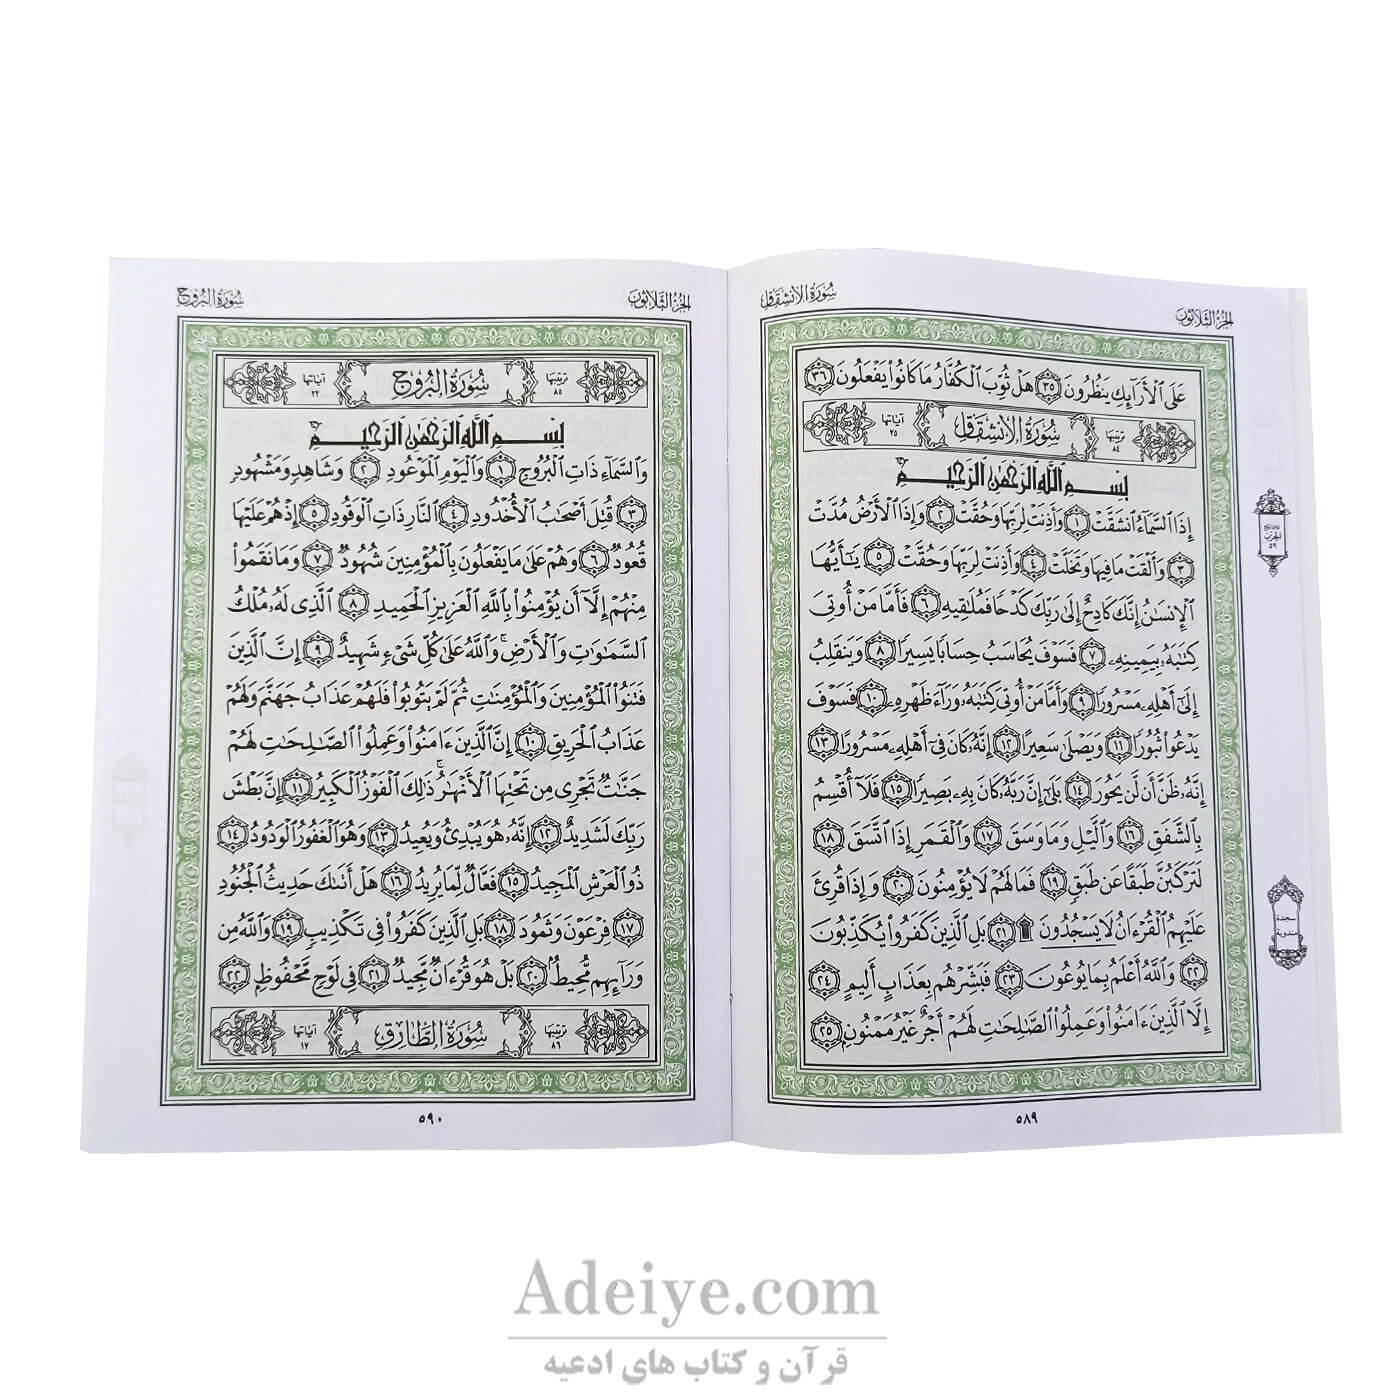 الجزء الثلاثون
سورة الانشقاق
عَلَى ٱلْأَرَآئِكِ يَنظُرُونَ ٣٥ هَلْ ثُوِّبَ ٱلْكُفَّارُ مَا كَانُوا۟ يَفْعَلُونَ ٣٦
ترتيبها ٨٤ سورة الانشقاق آياتها ٢٥
بِسْمِ ٱللَّهِ ٱلرَّحْمَٰنِ ٱلرَّحِيمِ
إِذَا ٱلسَّمَآءُ ٱنشَقَّتْ ١ وَأَذِنَتْ لِرَبِّهَا وَحُقَّتْ ٢ وَإِذَا ٱلْأَرْضُ مُدَّتْ
٣ وَأَلْقَتْ مَا فِيهَا وَتَخَلَّتْ ٤ وَأَذِنَتْ لِرَبِّهَا وَحُقَّتْ ٥ يَٰٓأَيُّهَا
ٱلْإِنسَٰنُ إِنَّكَ كَادِحٌ إِلَىٰ رَبِّكَ كَدْحًا فَمُلَٰقِيهِ ٦ فَأَمَّا مَنْ أُوتِىَ
كِتَٰبَهُۥ بِيَمِينِهِۦ ٧ فَسَوْفَ يُحَاسَبُ حِسَابًا يَسِيرًا ٨ وَيَنقَلِبُ
إِلَىٰٓ أَهْلِهِۦ مَسْرُورًا ٩ وَأَمَّا مَنْ أُوتِىَ كِتَٰبَهُۥ وَرَآءَ ظَهْرِهِۦ ١٠ فَسَوْفَ
يَدْعُوا۟ ثُبُورًا ١١ وَيَصْلَىٰ سَعِيرًا ١٢ إِنَّهُۥ كَانَ فِىٓ أَهْلِهِۦ مَسْرُورًا ١٣
إِنَّهُۥ ظَنَّ أَن لَّن يَحُورَ ١٤ بَلَىٰٓ إِنَّ رَبَّهُۥ كَانَ بِهِۦ بَصِيرًا ١٥ فَلَآ أُقْسِمُ
بِٱلشَّفَقِ ١٦ وَٱلَّيْلِ وَمَا وَسَقَ ١٧ وَٱلْقَمَرِ إِذَا ٱتَّسَقَ ١٨
لَتَرْكَبُنَّ طَبَقًا عَن طَبَقٍ ١٩ فَمَا لَهُمْ لَا يُؤْمِنُونَ ٢٠ وَإِذَا قُرِئَ
عَلَيْهِمُ ٱلْقُرْءَانُ لَا يَسْجُدُونَ ۩ ٢١ بَلِ ٱلَّذِينَ كَفَرُوا۟ يُكَذِّبُونَ
٢٢ وَٱللَّهُ أَعْلَمُ بِمَا يُوعُونَ ٢٣ فَبَشِّرْهُم بِعَذَابٍ أَلِيمٍ ٢٤
إِلَّا ٱلَّذِينَ ءَامَنُوا۟ وَعَمِلُوا۟ ٱلصَّٰلِحَٰتِ لَهُمْ أَجْرٌ غَيْرُ مَمْنُونٍۭ ٢٥
الحزب
٥٩
سجدة
مندوبة
٥٨٩
الجزء الثلاثون
سورة البروج
ترتيبها ٨٥ سورة البروج آياتها ٢٢
بِسْمِ ٱللَّهِ ٱلرَّحْمَٰنِ ٱلرَّحِيمِ
وَٱلسَّمَآءِ ذَاتِ ٱلْبُرُوجِ ١ وَٱلْيَوْمِ ٱلْمَوْعُودِ ٢ وَشَاهِدٍ وَمَشْهُودٍ
٣ قُتِلَ أَصْحَٰبُ ٱلْأُخْدُودِ ٤ ٱلنَّارِ ذَاتِ ٱلْوَقُودِ ٥ إِذْ هُمْ عَلَيْهَا
قُعُودٌ ٦ وَهُمْ عَلَىٰ مَا يَفْعَلُونَ بِٱلْمُؤْمِنِينَ شُهُودٌ ٧ وَمَا نَقَمُوا۟
مِنْهُمْ إِلَّآ أَن يُؤْمِنُوا۟ بِٱللَّهِ ٱلْعَزِيزِ ٱلْحَمِيدِ ٨ ٱلَّذِى لَهُۥ مُلْكُ
ٱلسَّمَٰوَٰتِ وَٱلْأَرْضِ ۚ وَٱللَّهُ عَلَىٰ كُلِّ شَىْءٍ شَهِيدٌ ٩ إِنَّ ٱلَّذِينَ
فَتَنُوا۟ ٱلْمُؤْمِنِينَ وَٱلْمُؤْمِنَٰتِ ثُمَّ لَمْ يَتُوبُوا۟ فَلَهُمْ عَذَابُ جَهَنَّمَ وَلَهُمْ
عَذَابُ ٱلْحَرِيقِ ١٠ إِنَّ ٱلَّذِينَ ءَامَنُوا۟ وَعَمِلُوا۟ ٱلصَّٰلِحَٰتِ لَهُمْ
جَنَّٰتٌ تَجْرِى مِن تَحْتِهَا ٱلْأَنْهَٰرُ ۚ ذَٰلِكَ ٱلْفَوْزُ ٱلْكَبِيرُ ١١ إِنَّ بَطْشَ
رَبِّكَ لَشَدِيدٌ ١٢ إِنَّهُۥ هُوَ يُبْدِئُ وَيُعِيدُ ١٣ وَهُوَ ٱلْغَفُورُ ٱلْوَدُودُ ١٤
ذُو ٱلْعَرْشِ ٱلْمَجِيدُ ١٥ فَعَّالٌ لِّمَا يُرِيدُ ١٦ هَلْ أَتَىٰكَ حَدِيثُ ٱلْجُنُودِ
١٧ فِرْعَوْنَ وَثَمُودَ ١٨ بَلِ ٱلَّذِينَ كَفَرُوا۟ فِى تَكْذِيبٍ ١٩ وَٱللَّهُ مِن
وَرَآئِهِم مُّحِيطٌۢ ٢٠ بَلْ هُوَ قُرْءَانٌ مَّجِيدٌ ٢١ فِى لَوْحٍ مَّحْفُوظٍۭ ٢٢
ترتيبها ٨٦ سورة الطارق آياتها ١٧
٥٩٠
Adeiye.com
قرآن و کتاب های ادعیه